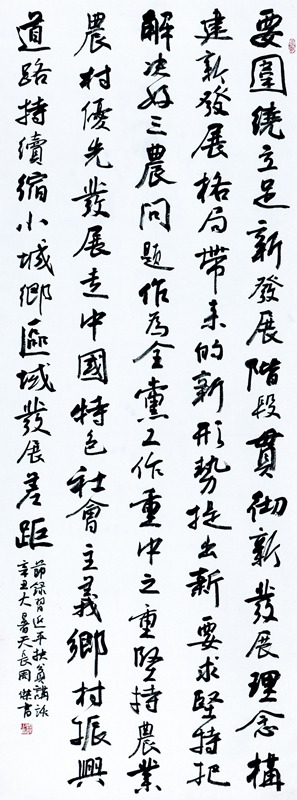 要圍繞立足新發展階段貫彻新發展理念構
建新發展格局帶来的新形勢提出新要求堅持把
解决好三農问题作為全黨工作重中之重堅持農業
農村優先發展走中國特色社會主義鄉村振興
道路持續缩小城鄉區域發展差距
節録習近平扶貧講話
辛丑大暑天長周傑書